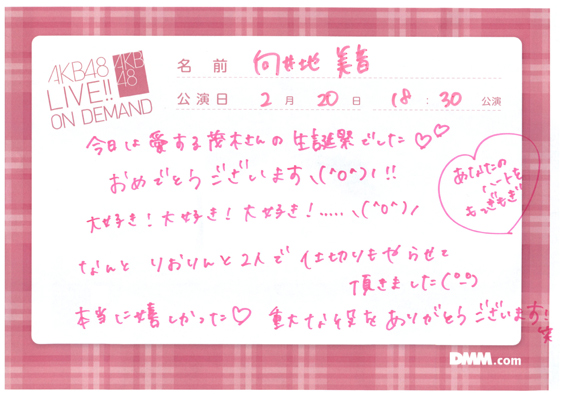 AKB48
LIVE!!
ON DEMAND
AKB
48
名 前 向井地 美音
公演日 2月 20日 18:30 公演
今日は愛する茂木さんの生誕祭でした♡♡
おめでとうございます、(^o^)ノ!!
大好き!大好き!大好き!.....、(^o^)ノ
あなたの
ハートを
もぎもぎ
なんと りおりんと2人で仕切りもやらせて
頂きました(^_-)
本当に嬉しかった♡ 重大な役をありがとうございます!笑
DMM.com